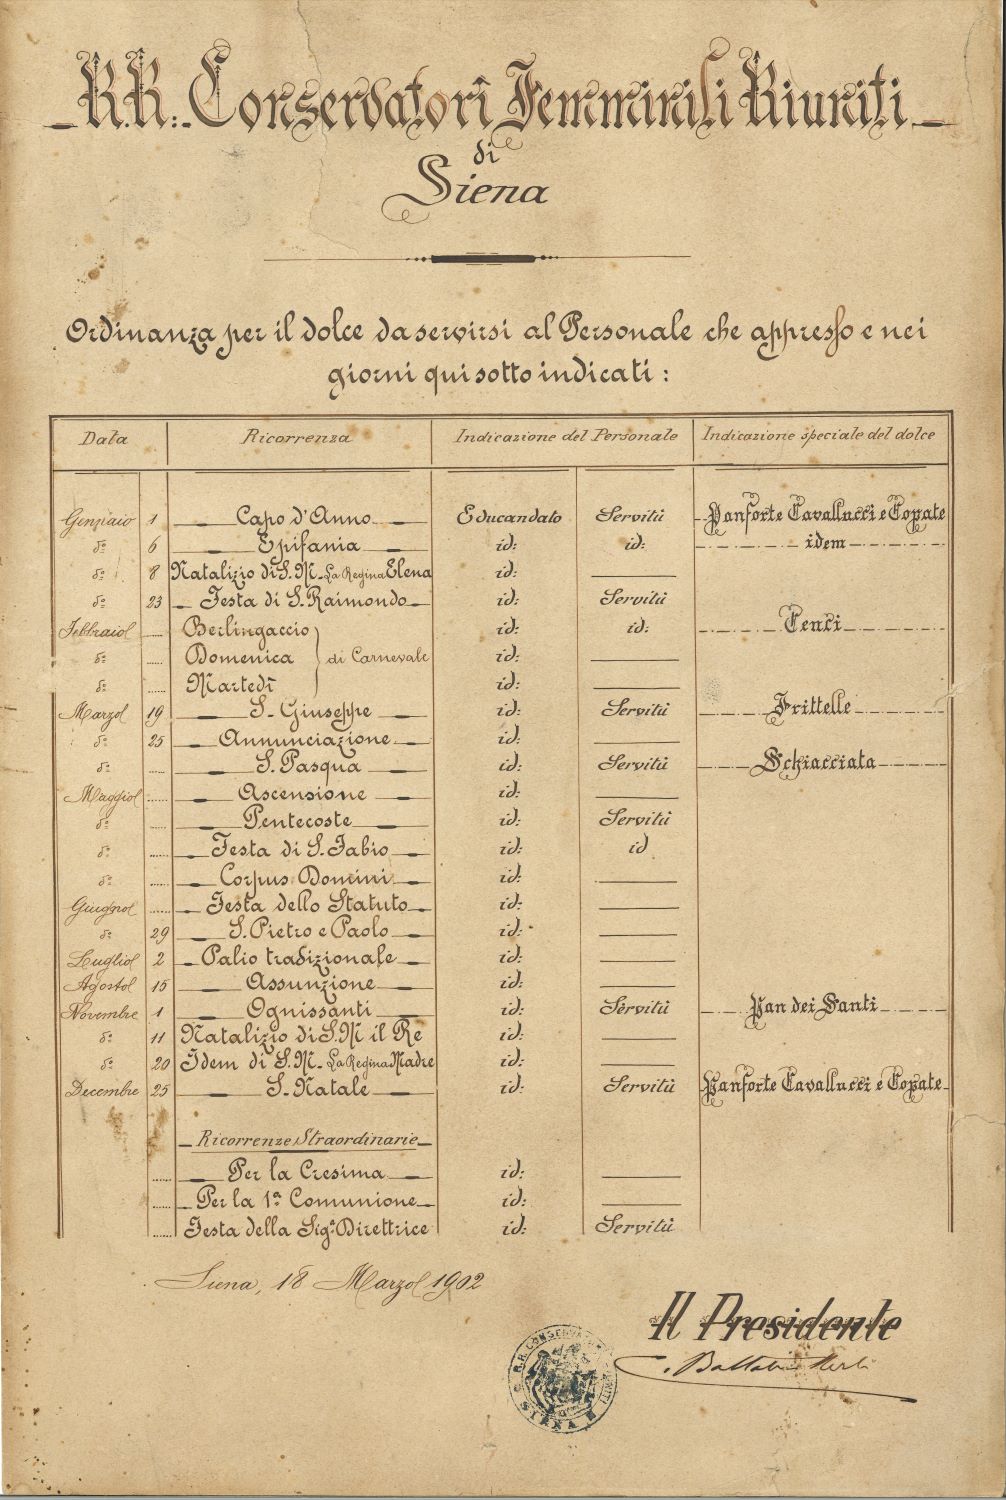 R.R. Conservatorî Femminili Riuniti
di
Siena
Ordinanza per il dolce da servirsi al Personale che appresso e nei
giorni qui sotto indicati:
Data Ricorrenza Indicazione del Personale Indicazione speciale del dolce
Gennaio 1 Capo d'Anno Educandato Servitù Panforte Cavallucci e Copate
do 6 Epifania id: id: idem
do 8 Natalizio di S. M. La Regina Elena id:
do 23 Festa di S. Raimondo id: Servitù
Febbraio Berlingaccio id: id: Cenci
do Domenica di Carnevale id:
do Martedì id:
Marzo 19 S. Giuseppe id: Servitù Frittelle
do 25 Annunciazione id:
do S. Pasqua id: Servitù Schiacciata
Maggio Ascensione id:
do Pentecoste id: Servitù
do Festa di S. Fabio id: id
do Corpus Domini id:
Giugno Festa dello Statuto id:
do 29 S. Pietro e Paolo id:
Luglio 2 Palio tradizionale id:
Agosto 15 Assunzione id:
Novembre 1 Ognissanti id: Servitù Pan dei Santi
do 11 Natalizio di S. M il Re id:
do 20 Idem di S. M. La Regina Madre id:
Decembre 25 S. Natale id: Servitù Panforte Cavallucci e Copate
Ricorrenze Straordinarie
Per la Cresima id:
Per la 1a Comunione id:
Festa della Siga Direttrice id: Servitù
Siena, 18 Marzo 1902
Il Presidente
C.
R.R. CONSERVATORI
SIENA